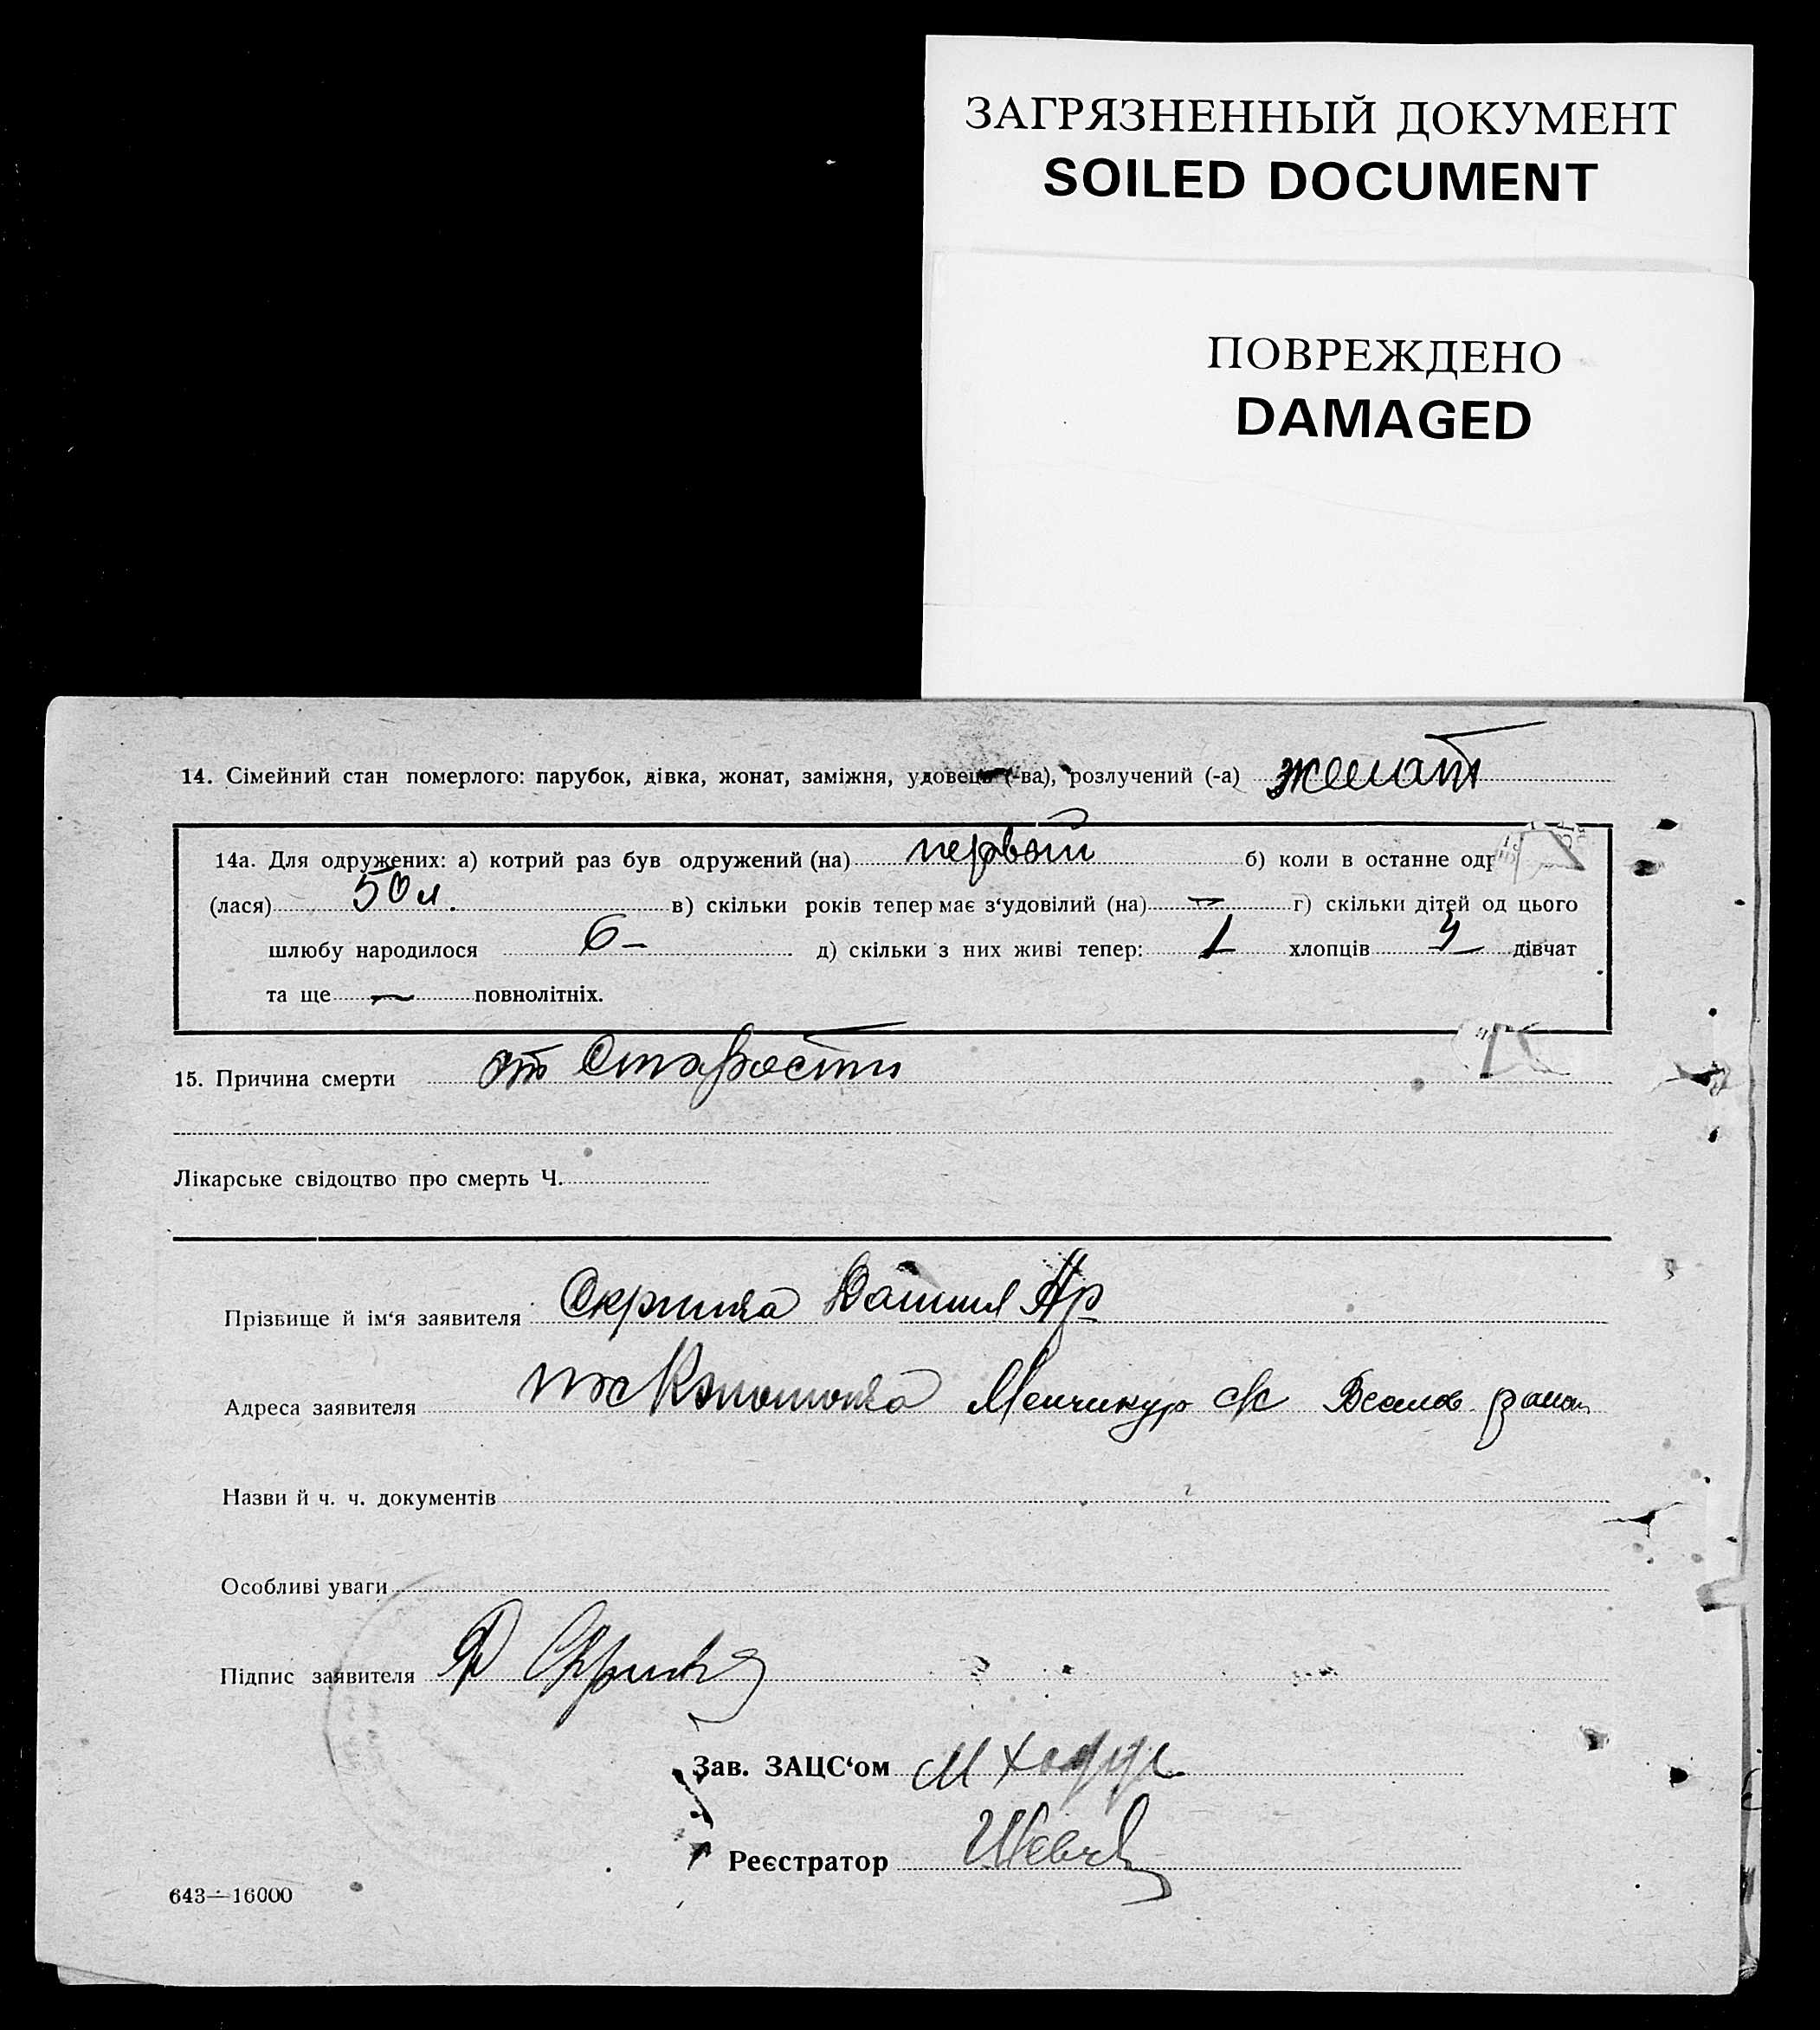 ЗАГРЯЗНЕННЫЙ ДОКУМЕНТ
SOILED DOCUMENT
ПОВРЕЖДЕНО
DAMAGED
14. Сімейний стан померлого: парубок, дівка, жонат, заміжня, удовець (-ва), розлучений (-а) женат
14а. Для одружених: а) котрий раз був одружений (на) первый б) коли в останне одр
(лася) 50 л. в) скільки років тепер має з‘удовілий (на) — г) скільки дітей од цього
шлюбу народилося 6 – д) скільки з них живі тепер: 1 хлопців 4 дівчат
та ще — повнолітніх.
15. Причина смерти от Старости
Лікарське свідоцтво про смерть Ч.
Прізвище й ім‘я заявителя Скрипка
Адреса заявителя Менчикур с/с Веселов. район
Назви й ч. ч. документів
Особливі уваги
Підпис заявителя Скрипка
Зав. ЗАЦС‘ом М
Реєстратор
643—16000